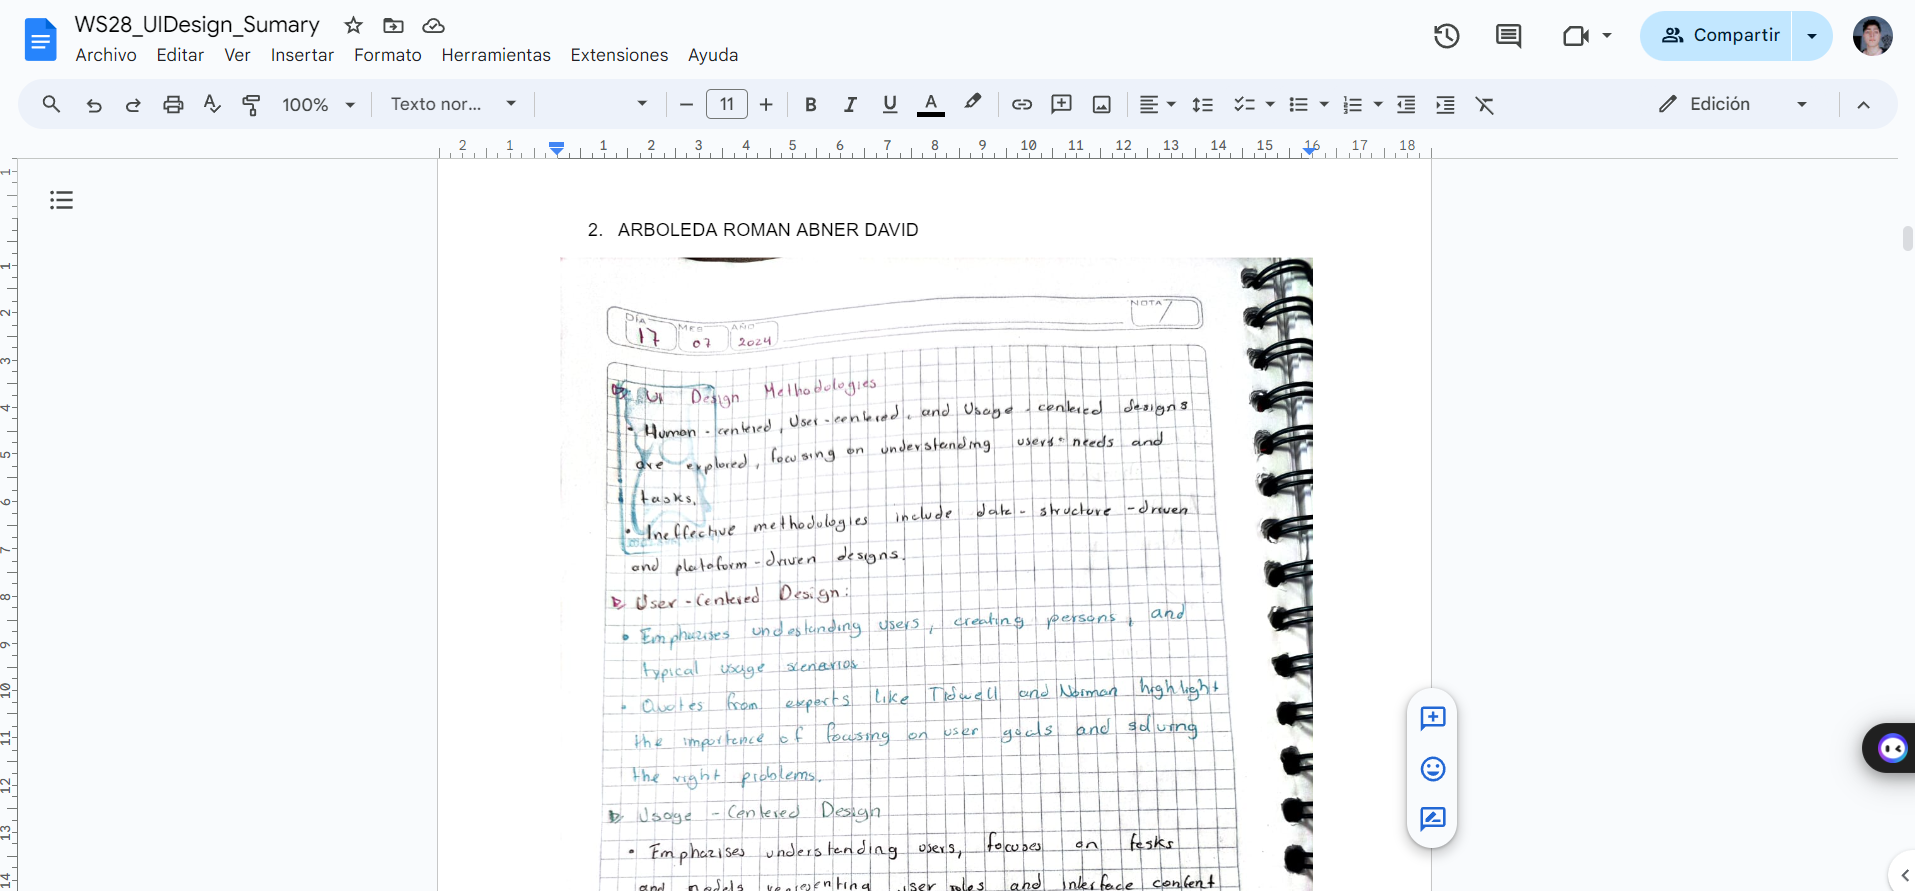 WS28_UIDesign_Sumary
Archivo Editar Ver Insertar Formato Herramientas Extensiones Ayuda
Compartir
100% Texto nor... 11 B I U A Edición
2 1 1 2 3 4 5 6 7 8 9 10 11 12 13 14 15 16 17 18
2. ARBOLEDA ROMAN ABNER DAVID
DÍA MES AÑO NOTA
17 07 2024
UI Design Methodologies
• Human-centered, User-centered, and Usage-centered designs
are explored, focusing on understanding users needs and
tasks.
• Ineffective methodologies include date-structure-driven
and plataform-driven designs.
User-Centered Design:
• Emphazises undestanding users, creating persons, and
typical usage scenarios
• Quotes from experts like Tidwell and Norman highlight
the importence of focusing on user goals and solving
the right problems.
Usage-Centered Design
• Emphazises understanding users, focuses on tesks
and models representing user roles and interface content
1
1
2
3
4
5
6
7
8
9
10
11
12
13
14